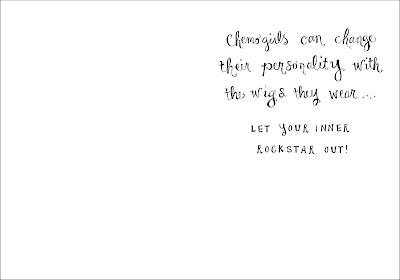 Chemogirls can change
their personality with
the wigs they wear....
LET YOUR INNER
ROCKSTAR OUT!